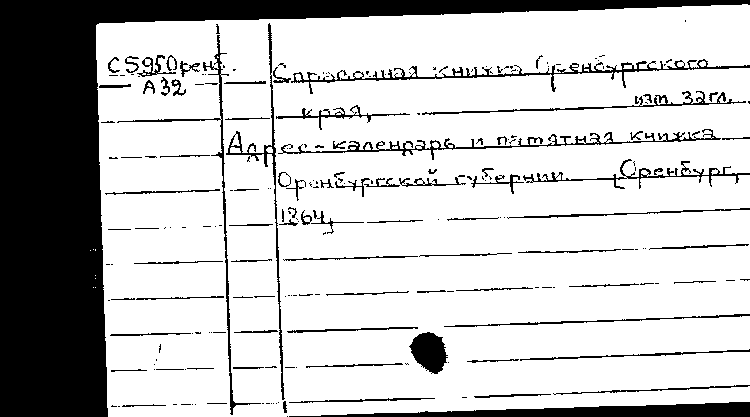 С595Оренб. Справочная книжка Оренбургского
А32 края, изм. загл.
Адрес-календарь и памятная книжка
Оренбургской губернии. [Оренбург,
1864]